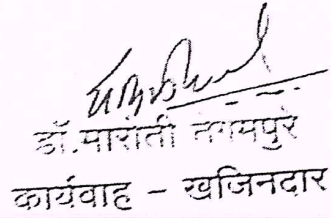 डॉ.मारोती तेगमपुरे
कार्यवाह - खजिनदार